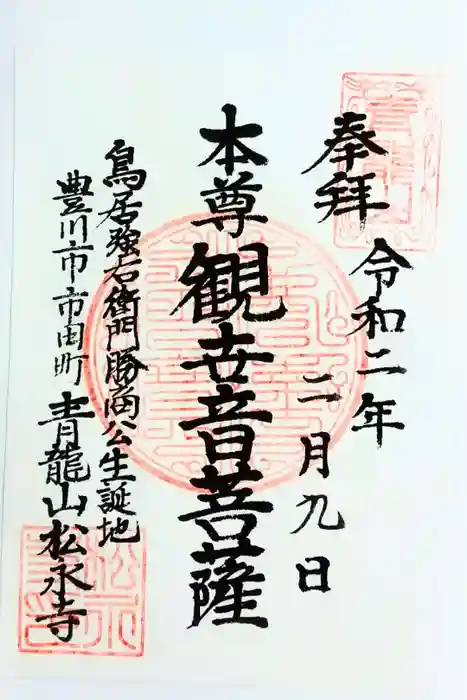 奉拝
令和二年
二月九日
本尊 観世音菩薩
鳥居強右衛門勝商公生誕地
豊川市市田町 青龍山松永寺